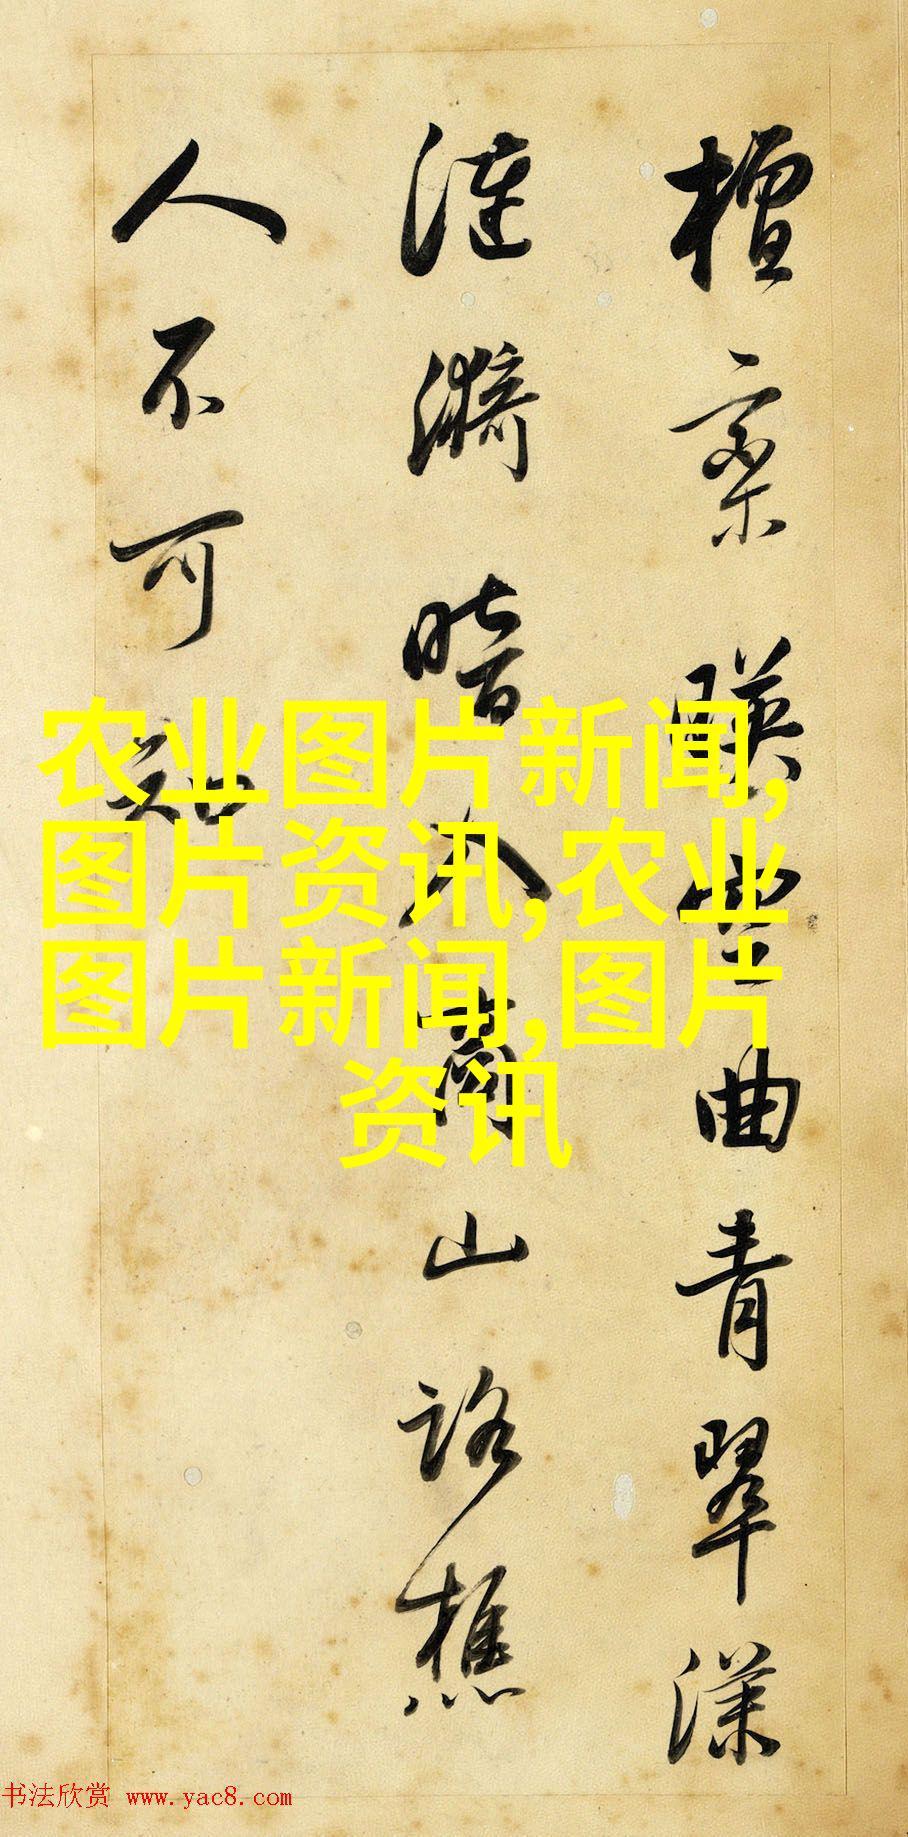 檀栾暎空曲青翠漾
漣漪暗入商山路樵
人不可知
农业图片新闻,
图片资讯,农业
图片新闻,图片
资讯
书法欣赏 www.yac8.com